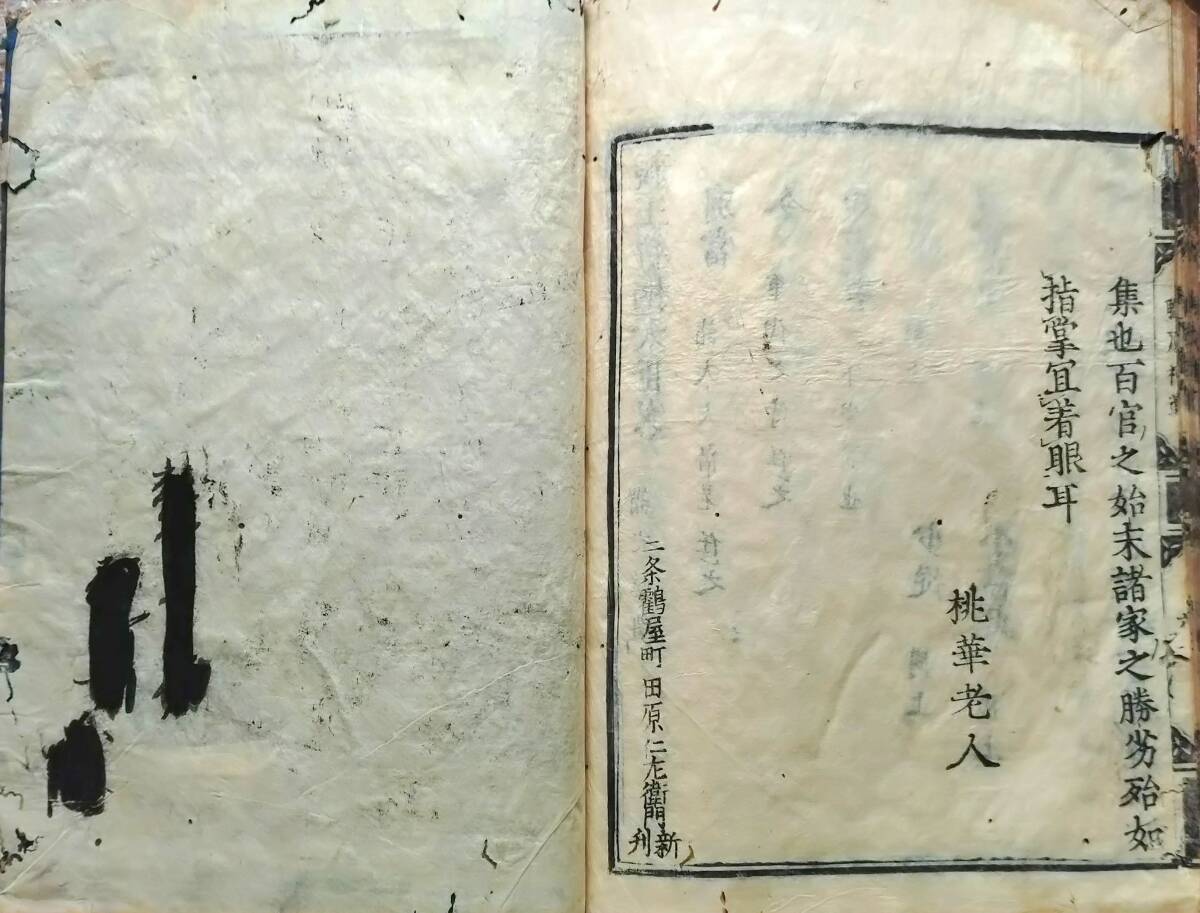 集也百官之始末諸家之勝劣殆如
指掌宜着眼耳
桃華老人
二条鶴屋町 田原仁左衛門 新刊